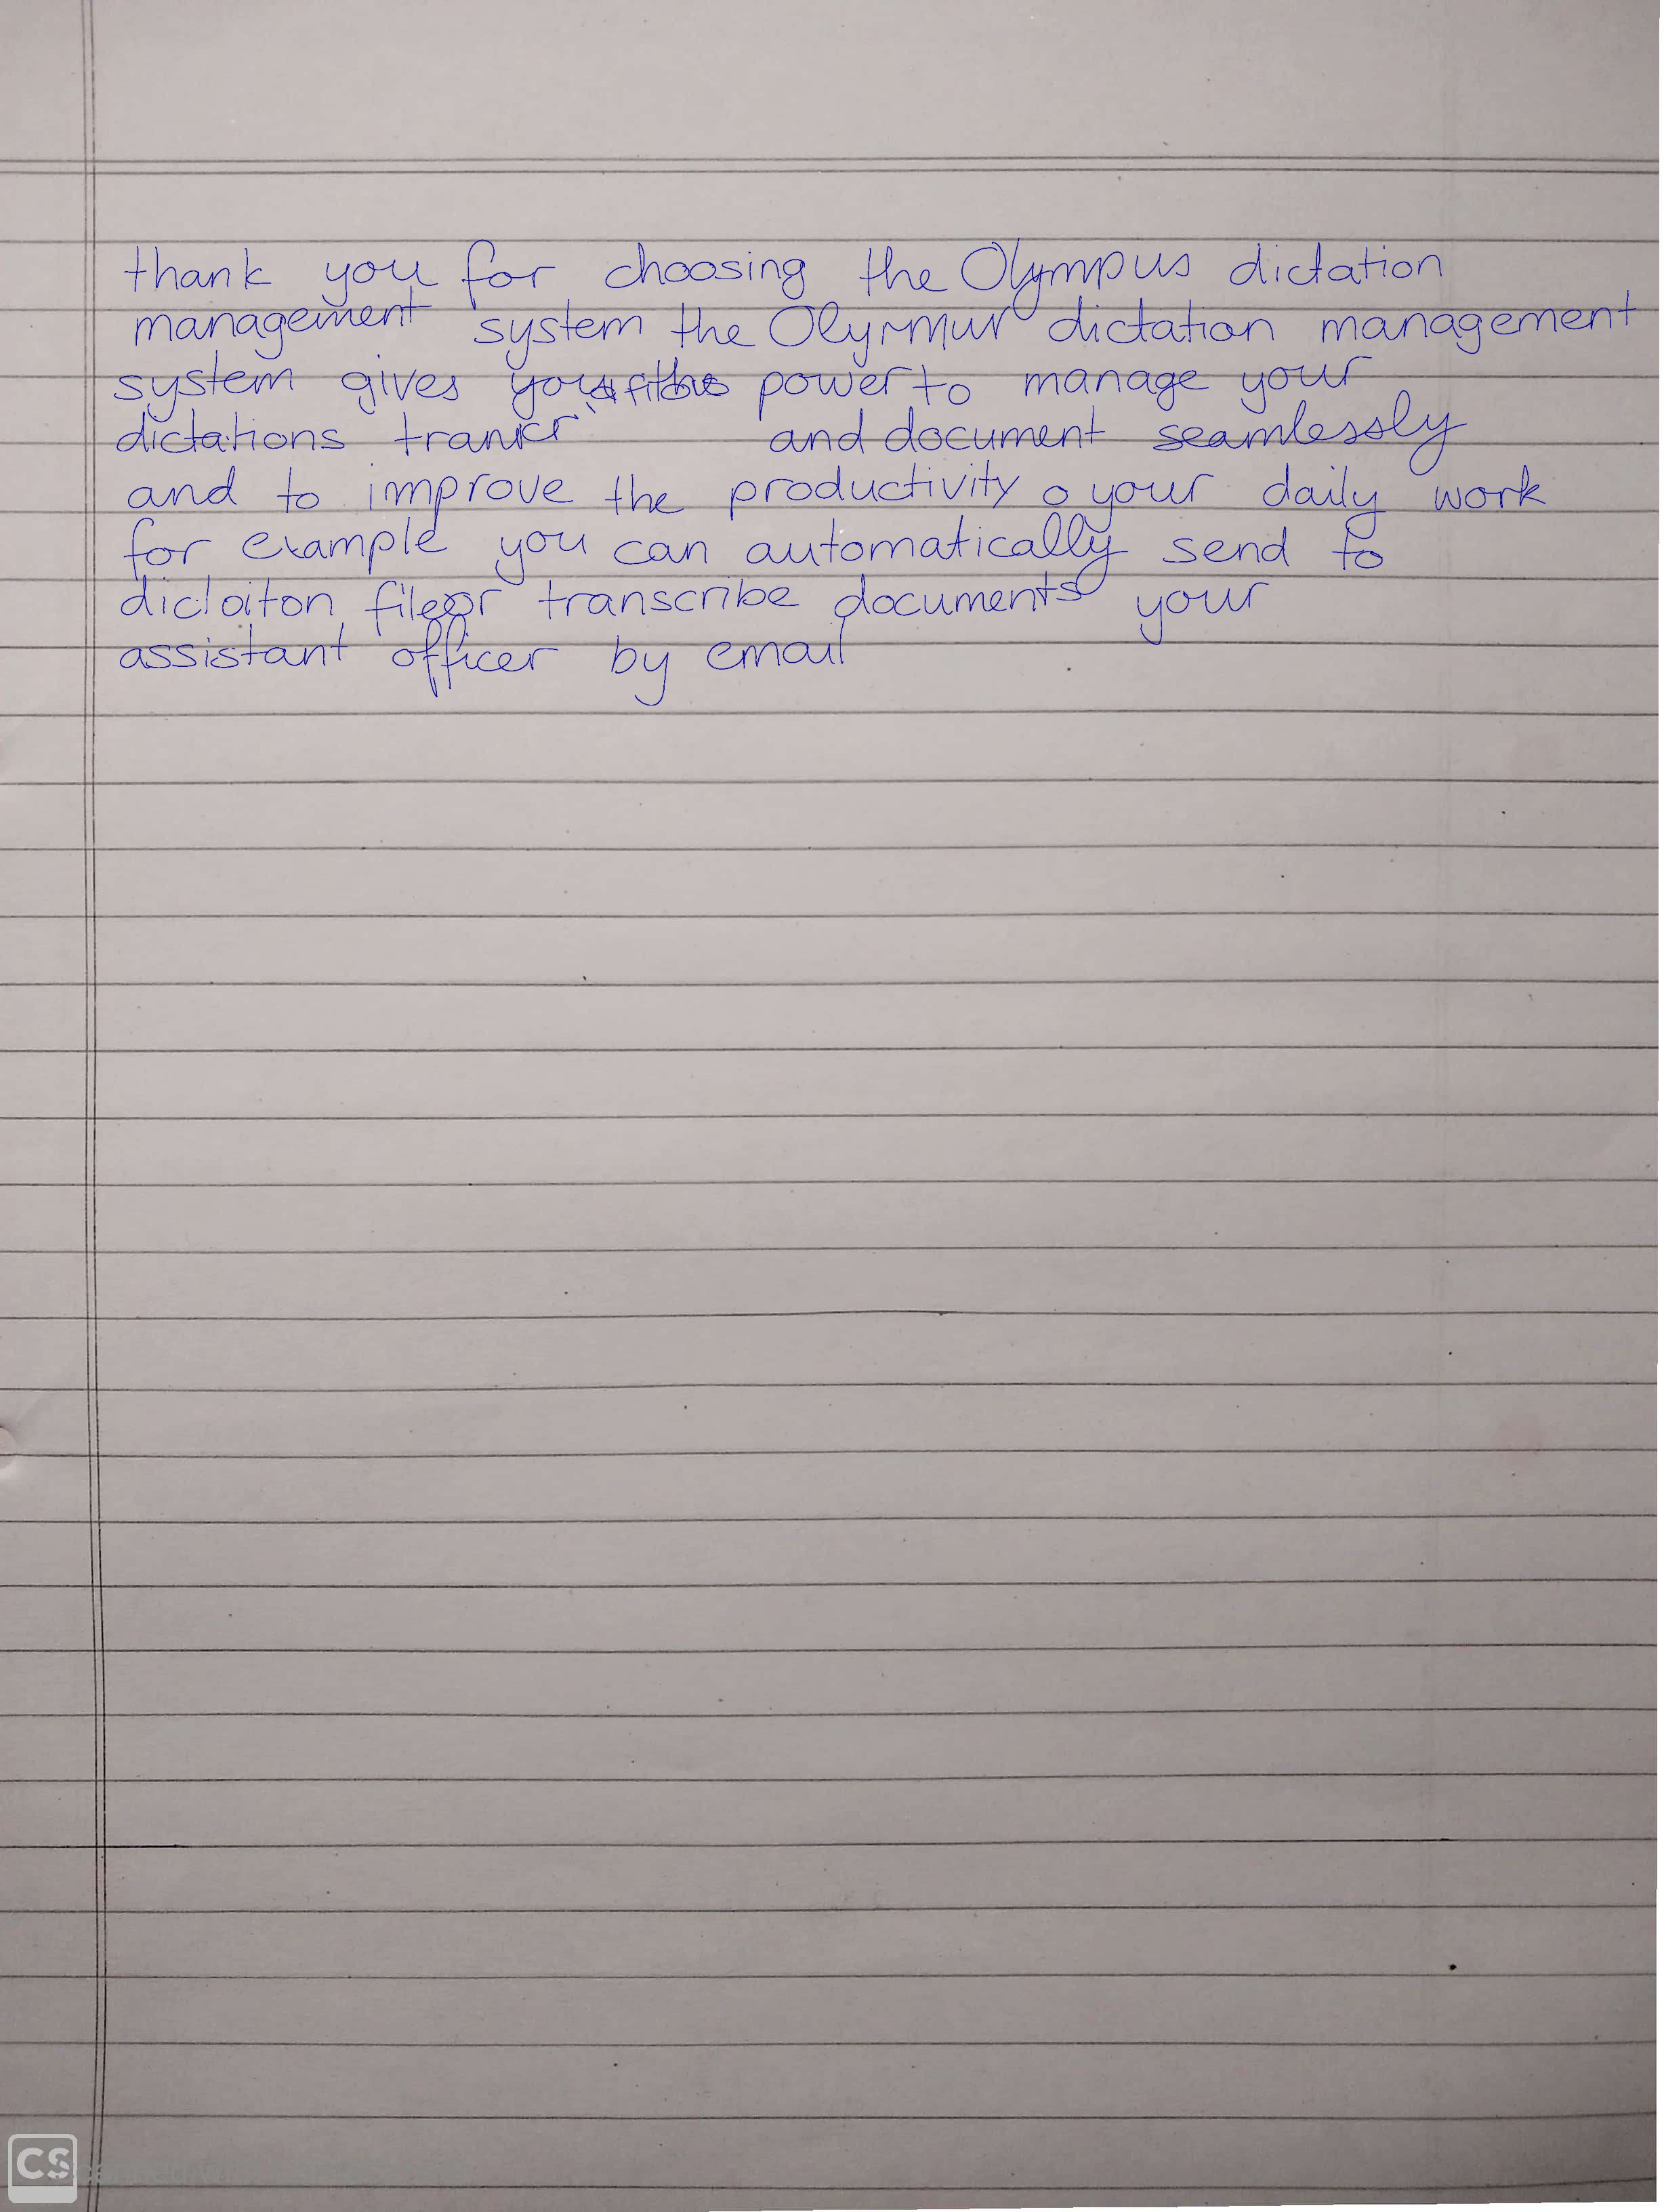 thank you for choosing the Olympus dictation
management system the Olyrmur dictation management
system gives you the power to manage your
dictations trankr and document seamlessly
and to improve the productivity o your daily work
for example you can automatically send to
dicloiton file or transcribe documents your
assistant officer by email
CS